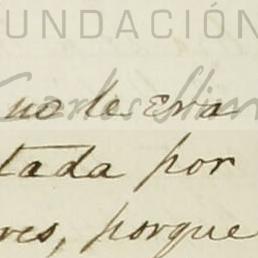 FUNDACIÓN
Carlos Slim
no le era
tada por
res, porque